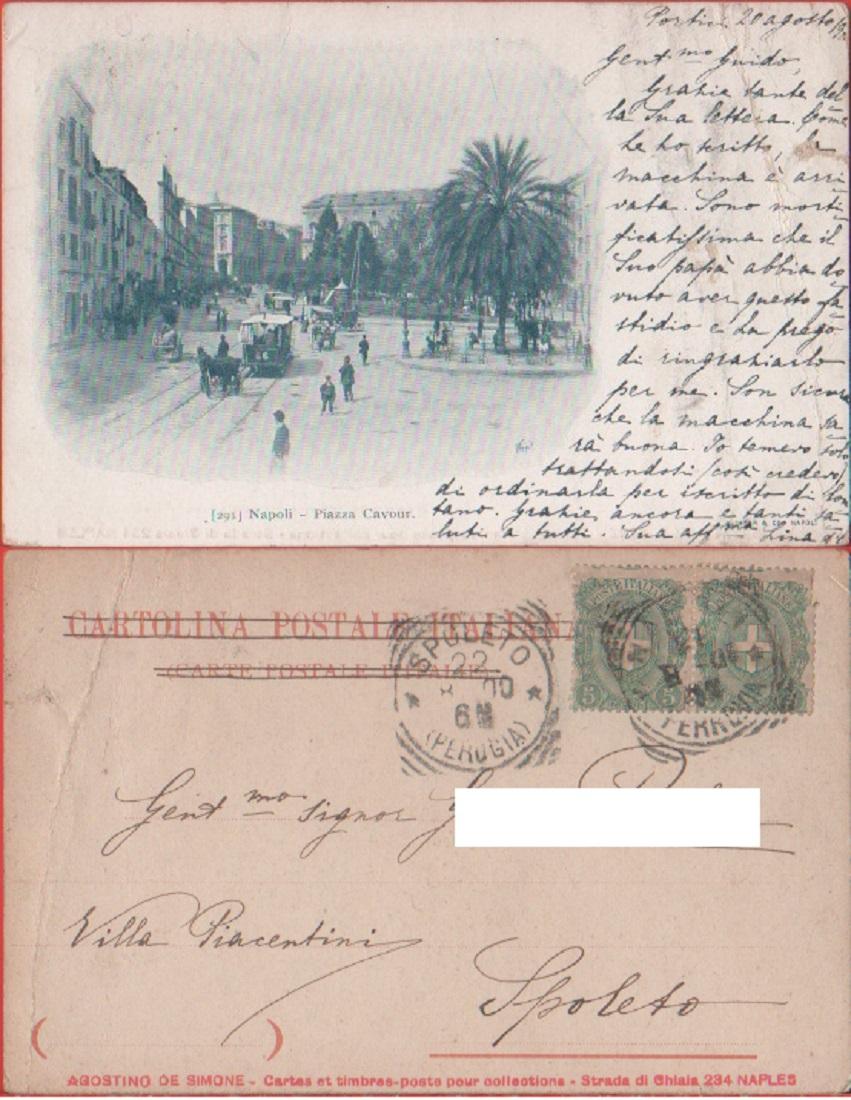 Portici 20 agosto
Gent.mo Guido,
Grazie tante del
la Sua lettera. Come
Le ho scritto, la
macchina è arri
vata. Sono morti
ficatissima che il
Suo papà abbia do
vuto aver questo fa
stidio e La prego
di ringraziarlo
per me. Son sicura
che la macchina sa
rà buona. Io temevo solo
trattandosi (così credevo)
di ordinarla per iscritto di lon
tano. Grazie ancora e tanti sa
luti a tutti. Sua aff.ma Lina
[291] Napoli - Piazza Cavour.
CARTOLINA POSTALE ITALIANA
(CARTE POSTALE D'ITALIE)
POSTE ITALIANE
5 5
SPOLETO
22
8 00
6 M
(PERUGIA)
FERROVIA
Gent.mo Signor
Villa Piacentini
Spoleto
AGOSTINO DE SIMONE - Cartes et timbres-poste pour collections - Strada di Chiaia 234 NAPLES